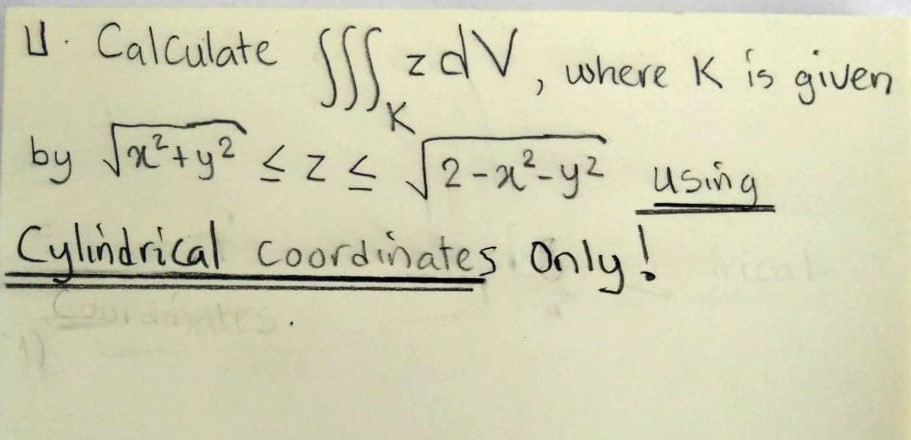 1. Calculate ∭_K z dV, where K is given
by √(x²+y²) ≤ z ≤ √(2-x²-y²) using
Cylindrical Coordinates Only!
Coordinates
1)